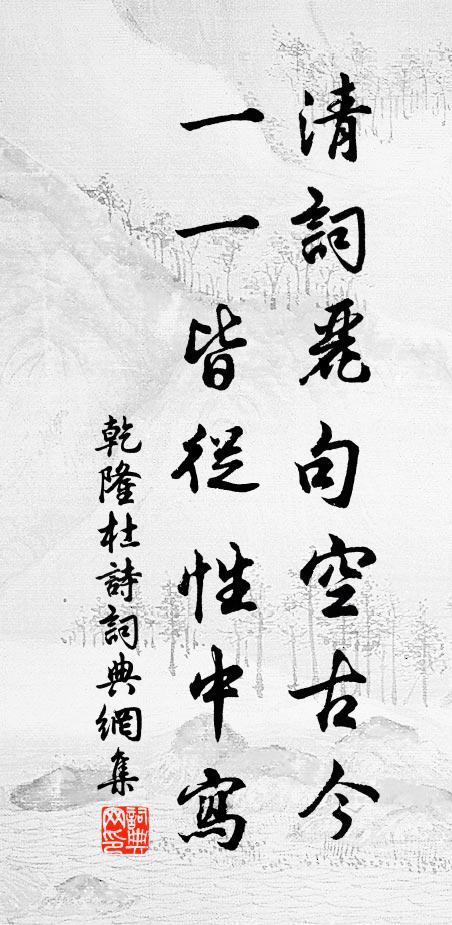 清詞麗句空古今
一一皆從性中寫
乾隆杜詩詞典網集
詞典網印